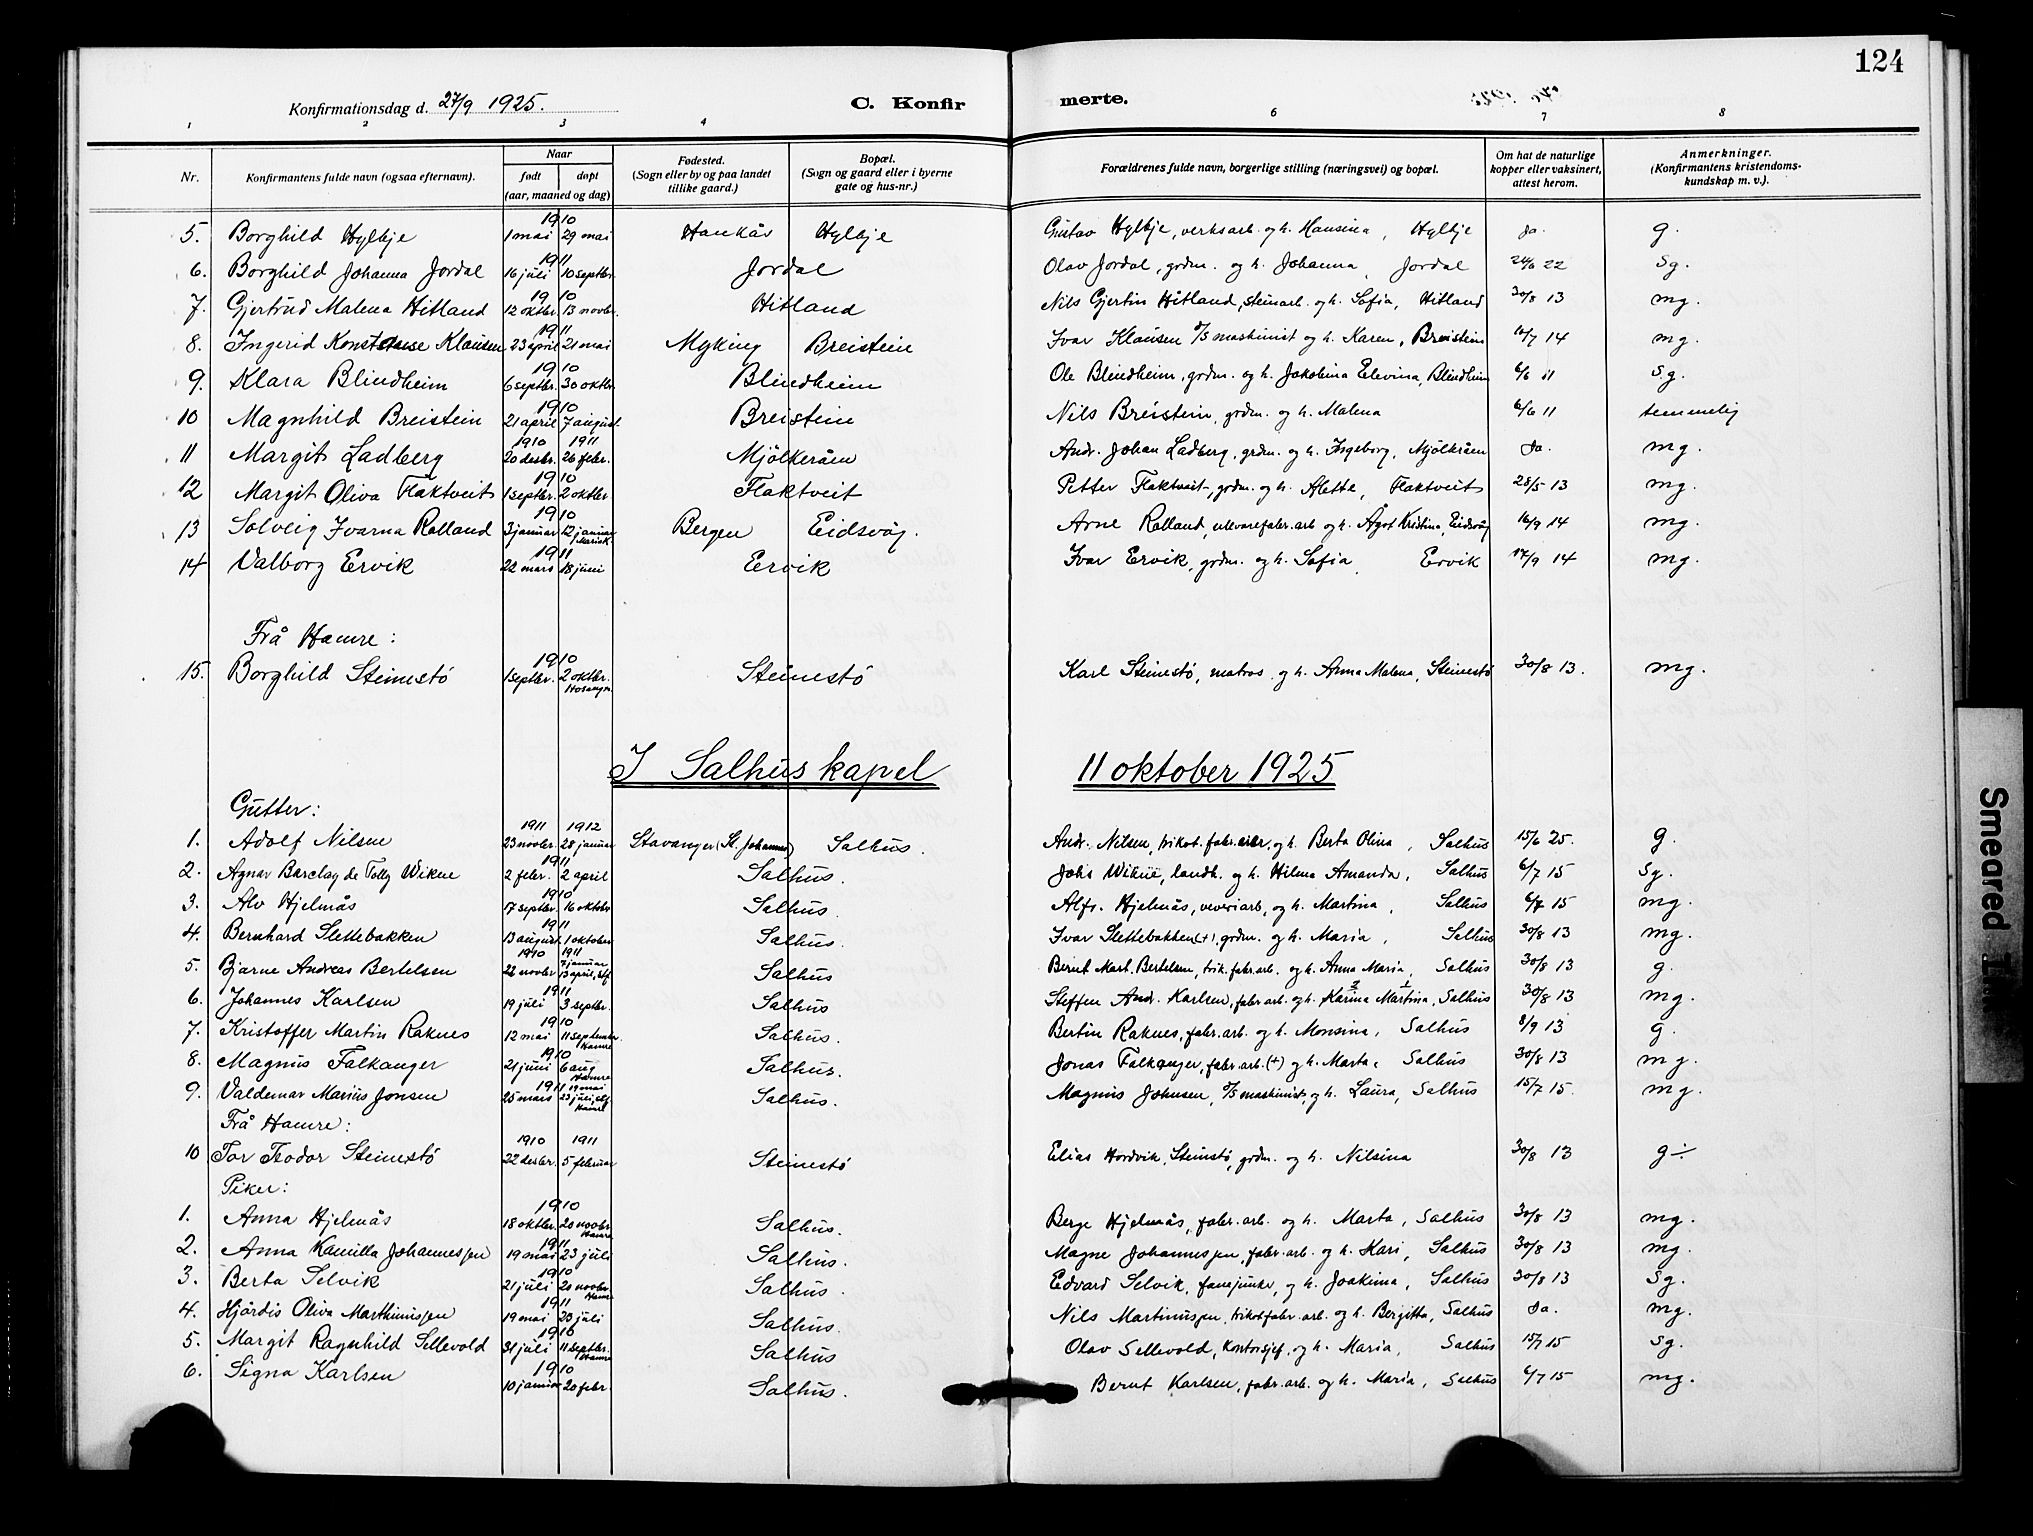 124
Konfirmationsdag d. 27/9 1925. C. Konfirmerte.
1 2 3 4 6 7 8
Nr. Konfirmantens fulde navn (ogsaa efternavn). Naar født døpt (aar, maaned og dag) Fødested. (Sogn eller by og paa landet tillike gaard.) Bopæl. (Sogn og gaard eller i byerne gate og hus-nr.) Forældrenes fulde navn, borgerlige stilling (næringsvei) og bopæl. Om hat de naturlige kopper eller vaksinert, attest herom. Anmerkninger. (Konfirmantens kristendomskundskap m. v.).
5. Borghild Hylkje 1910 1 mai 29 mai Haukås Hylkje Gustav Hylkje, verksarb. og h. Hansina, Hylkje Ja. g.
6. Borghild Johanna Jordal 1911 16 juli 10 septbr. Jordal Olav Jordal, grdm. og h. Johanna, Jordal 24/6 22 sg.
7. Gjertrud Malena Hitland 1910 12 oktbr. 13 novbr. Hitland Nils Gjertin Hitland, steinarb. og h. Sofia, Hitland 30/8 13 mg.
8. Ingerid Konstanse Klausen 1911 23 april 21 mai Myking Breistein Ivar Klausen d/s maskinist og h. Karen, Breistein 10/7 14 mg.
9. Klara Blindheim 1910 6 septbr. 30 oktbr. Blindheim Ole Blindheim, grdm. og h. Jakobina Elevina, Blindheim 6/6 11 sg.
10 Magnhild Breistein 1910 21 april 7 august Breistein Nils Breistein, grdm. og h. Malena 6/6 11 temmelig
11 Margit Ladberg 1910 1911 20 desbr. 26 febr. Mjölkeråen Andr. Johan Ladberg, grdm. og h. Ingeborg, Mjölkråen Ja. mg.
12 Margit Oliva Flaktveit 1910 1 septbr. 2 oktbr Flaktveit Petter Flaktveit, grdm. og h. Alette, Flaktveit 28/5 13 mg.
13 Solveig Ivarna Rolland 1910 3 januar 12 januar Mariek. Bergen Eidsvåg. Arne Rolland, ullvarefabr. arb og h. Ågot Kristina, Eidsvåg 16/9 14 mg.
14 Valborg Ervik 1911 22 mars 18 juni Ervik Ivar Ervik, grdm. og h. Sofia, Ervik 17/9 14 mg.
Frå Hamre:
15. Borghild Steinestö 1910 1 septbr. 2 oktbr. Hosangr. Steinestö Karl Steinestö, matros og h. Anna Malena, Steinestö 30/8 13. mg.
I Salhus kapel 11 oktober 1925
Gutter:
1. Adolf Nilsen 1911 1912 23 novbr. 28 januar Stavanger (St. Johannes) Salhus. Andr. Nilsen, trikot. fabr. eier, og h. Berta Olina, Salhus 15/6 25. g.
2. Agnar Barclay de Tolly Wikne 1911 2 febr. 2 april Salhus. Johs Wikne, landh. og h. Hilma Amanda, Salhus 6/7 15 sg.
3. Alv Hjelmås 1910 17 septbr. 16 oktobr Salhus. Alfr. Hjelmås, veveriarb, og h. Martina, Salhus 6/7 15 mg.
4. Bernhard Slettebakken 1911 13 august 1 oktober Salhus. Ivar Slettebakken (+), grdm. og h. Maria, Salhus 30/8 13 mg.
5. Bjarne Andreas Bertelsen 1910 1911 22 novbr 7 januar 13 april, stf. Salhus Bernt Mart. Bertelsen, trik. fabr. arb. og h. Anna Maria, Salhus 30/8 13 g.
6. Johannes Karlsen 1911 19 juli 3 septbr. Salhus Steffen Andr. Karlsen, fabr. arb. og h. Karina Martina, Salhus 30/8 13 mg.
7. Kristoffer Martin Raknes 1910 12 mai 11 september Hamre Salhus. Bertin Raknes, fabr. arb. og h. Monsina, Salhus 8/9 13 g.
8. Magnus Falkanger 1910 21 juni 6 aug Hamre Salhus. Jonas Falkanger, fabr. arb. (+) og h. Marta, Salhus 30/8 13 mg.
9. Valdemar Marius Jonsen 1911 25 mars 19 mai 23 juli, stf Hamre Salhus. Magnus Johnsen, d/s maskinist, og h. Laura, Salhus 15/7 15. mg.
Frå Hamre:
10 Tor Teodor Steinestö 1910 1911 22 desbr. 5 februar Steinestö Elias Hordvik, Steinstö, grdm. og h. Nilsina 30/8 13 g ÷
Piker:
1. Anna Hjelmås 1910 18 oktbr. 20 novbr. Hamre Salhus. Berge Hjelmås, fabr. arb. og h. Marta, Salhus 30/8 13 mg.
2. Anna Kamilla Johannessen 1911 19 mai 23 juli Salhus. Magne Johannessen, fabr. arb. og h. Kari, Salhus 30/8 13 mg.
3. Berta Selvik 1910 21 juli 20 novbr. Hamre Salhus. Edvard Selvik, fanejunker, og h. Joakima, Salhus 30/8 13 sg.
4. Hjördis Oliva Marthinussen 1911 19 mai 23 juli Salhus. Nils Martinussen, trikotfabr. arb. og h. Bergitta, Salhus Ja. mg.
5. Margit Ragnhild Sellevold 1910 31 juli 11 septbr. Hamre Salhus Olav Sellevold, kontorsjef, og h. Maria, Salhus 15/7 15 sg.
6. Signa Karlsen 1910 10 januar 20 febr. Salhus. Bernt Karlsen, fabr. arb. og h. Maria, Salhus 6/7 15 mg.
Smeared